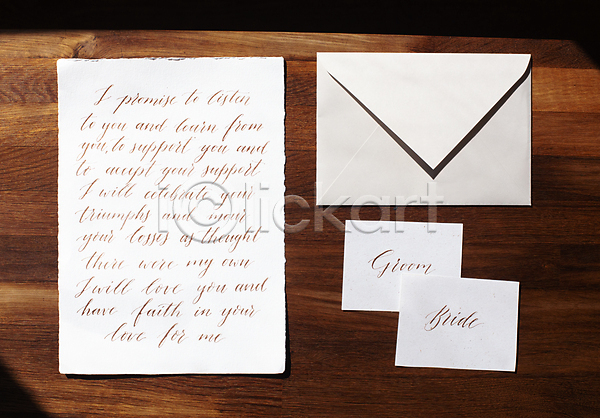 I promise to listen
to you and learn from
you, to support you and
to accept your support
I will celebrate your
triumphs and mour
your losses as thought
there were my own
I will love you and
have faith in your
love for me
Groom
Bride
iclickart